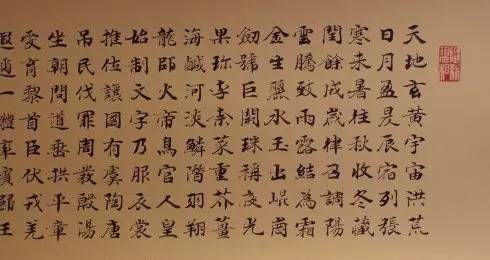 天地玄黃宇宙洪荒
日月盈昃辰宿列張
寒来暑往秋收冬藏
閏餘成歲律召調陽
雲騰致雨露結為霜
金生麗水玉出崐崗
劒號巨闕珠稱夜光
果珍李柰菜重芥薑
海鹹河淡鱗潛羽翔
龍師火帝鳥官人皇
始制文字乃服衣裳
推位讓國有虞陶唐
吊民伐罪周發殷湯
坐朝問道垂拱平章
愛育黎首臣伏戎羌
遐邇一體率賓歸王